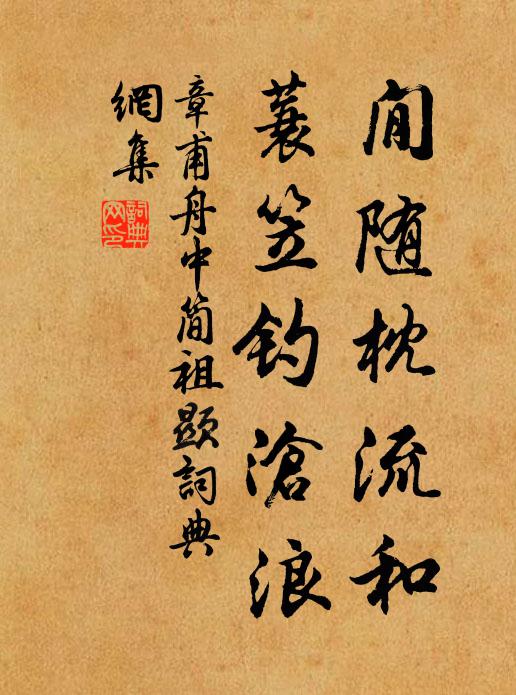 闲随枕流和
蓑笠钓滄浪
章甫舟中简祖顯詞典
網集
詞典
网印